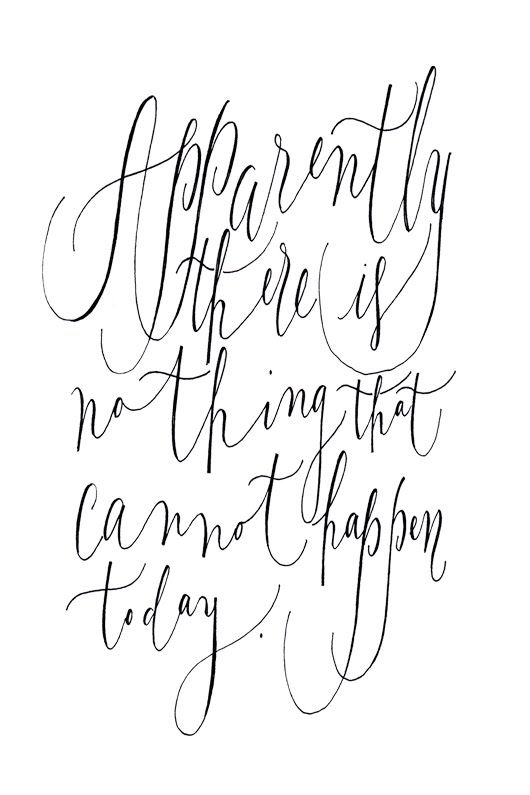 Apparently
there is
nothing that
cannot happen
today.